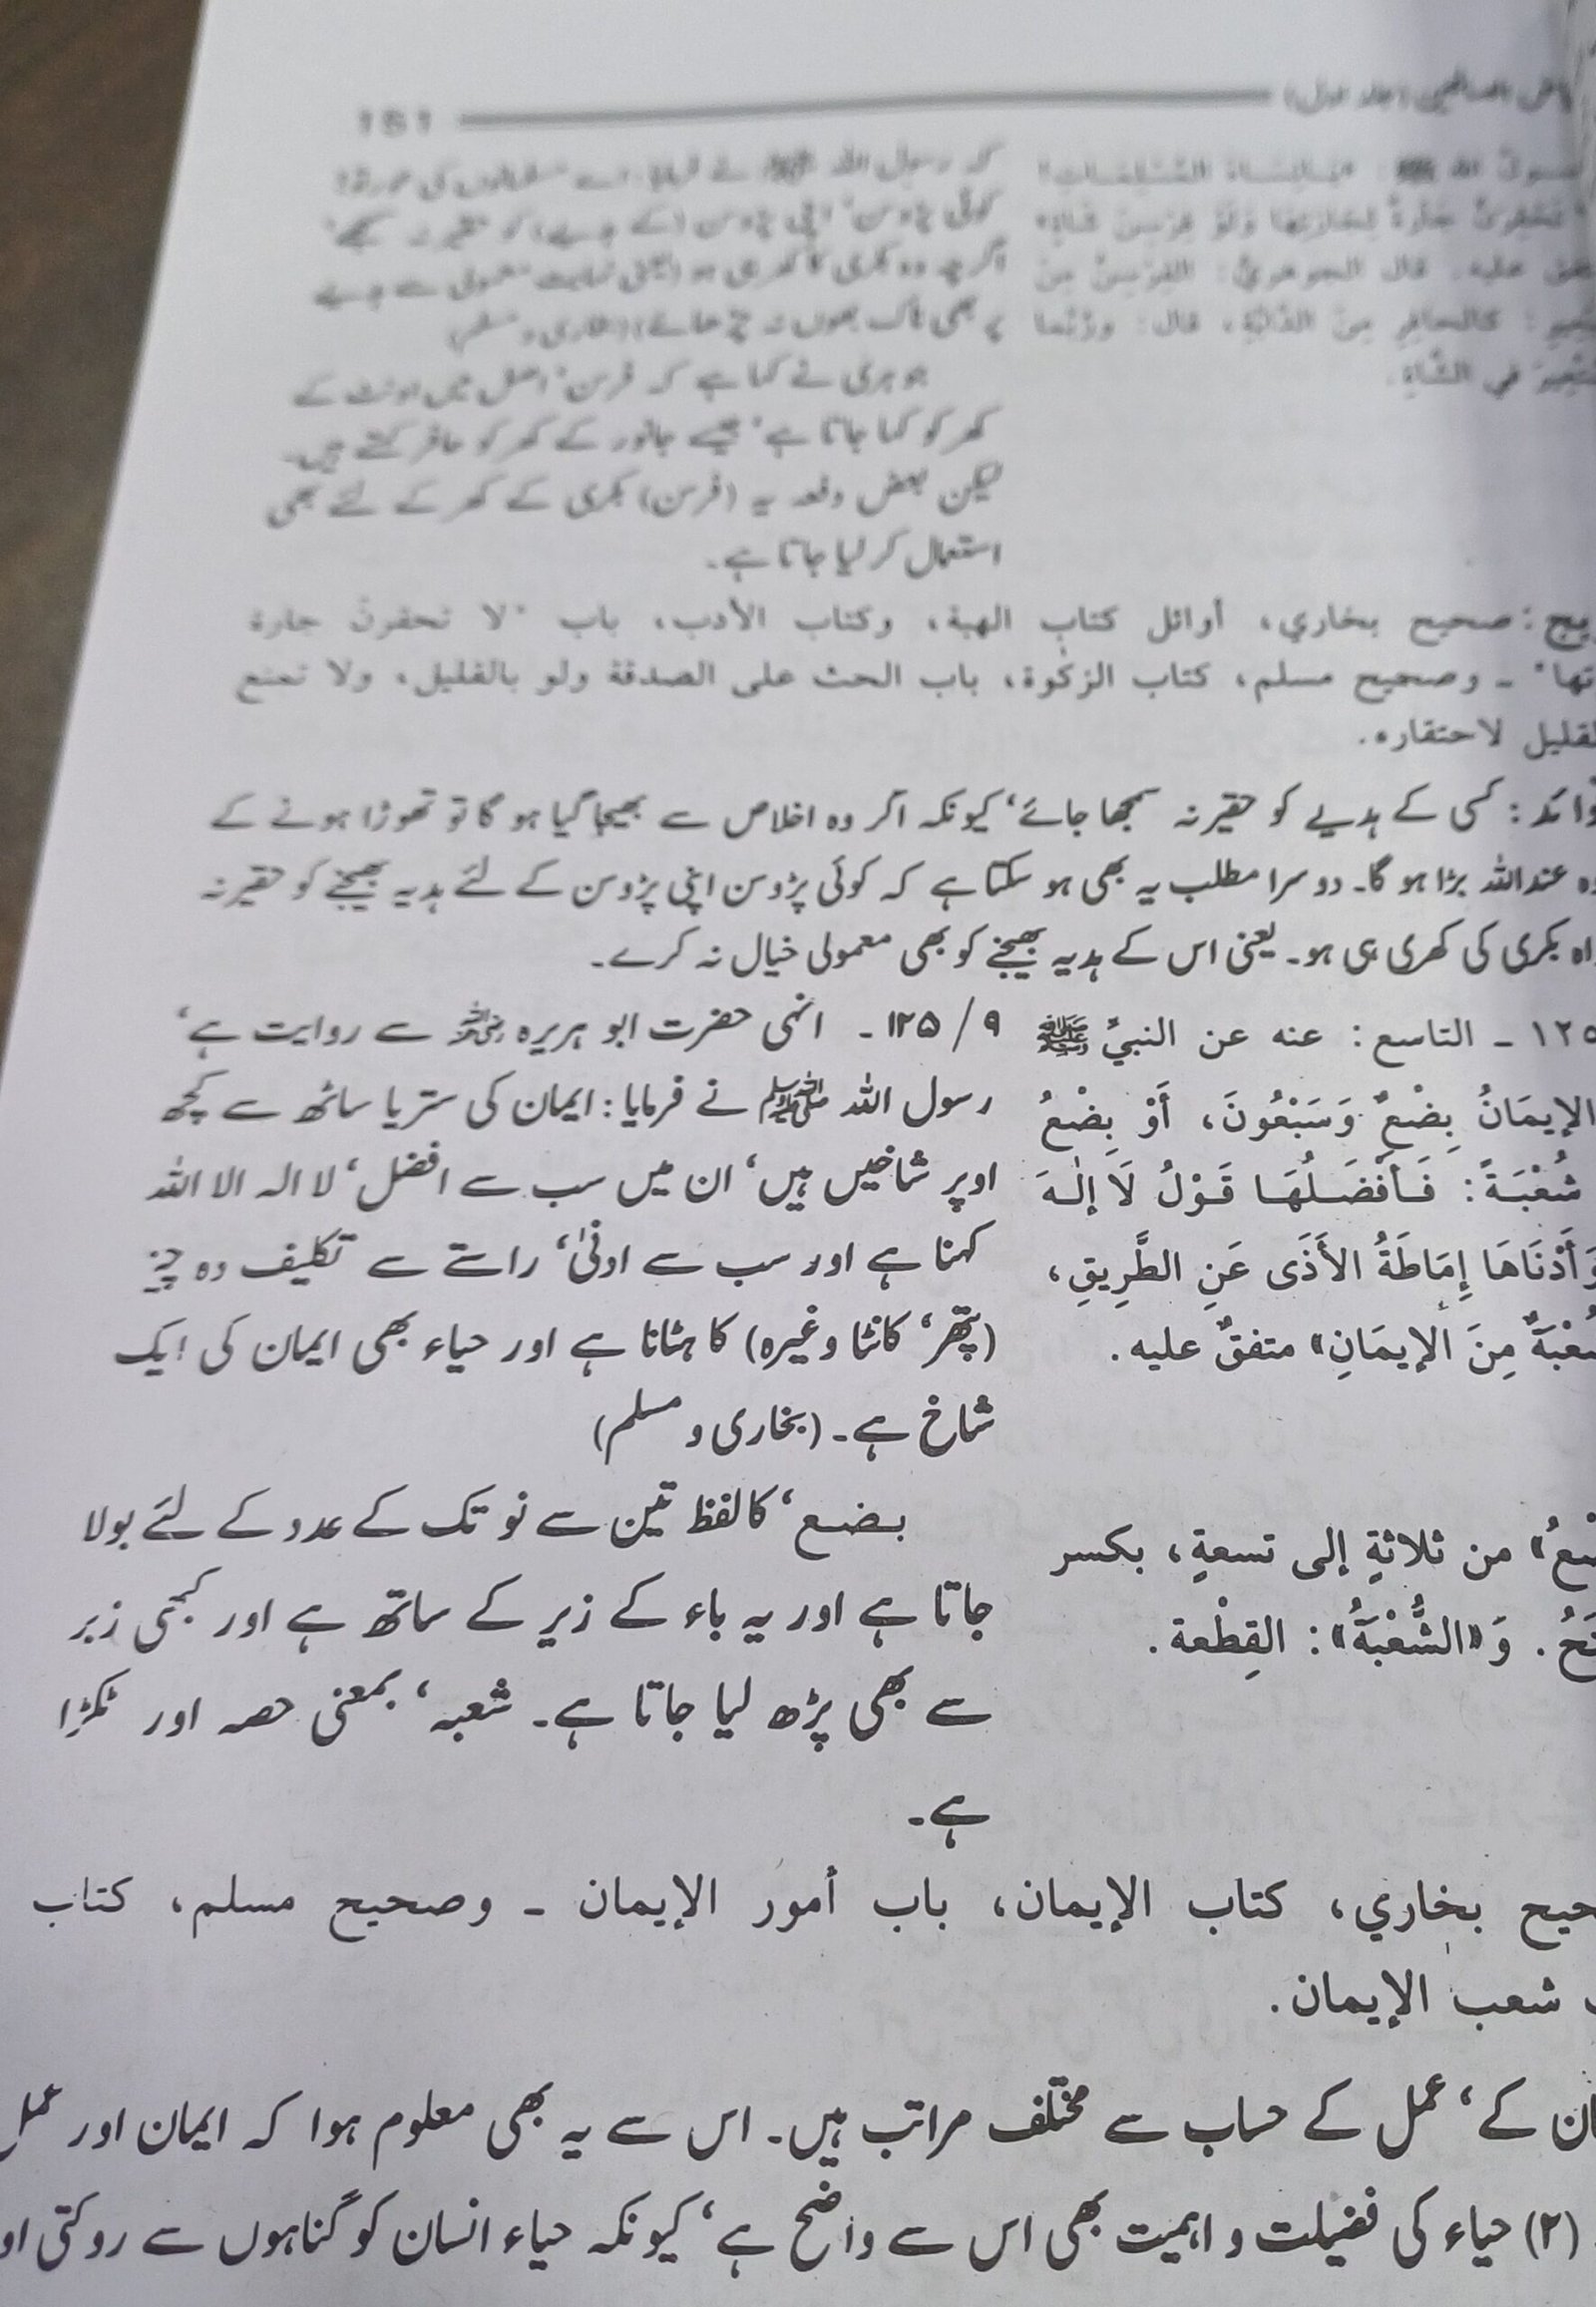 151
کہ رسول اللہ ﷺ نے فرمایا، اے مسلمانوں کی عورتو!
کوئی پڑوسن' اپنی پڑوسن (کے ہدیے) کو حقیر نہ سمجھے'
اگرچہ وہ بکری کا کھر ہی ہو (یعنی نہایت معمولی سے ہدیے
پر بھی ناک بھوں نہ چڑھائے) (بخاری و مسلم)
جوہری نے کہا ہے کہ فرسن' اصل میں اونٹ کے
کھر کو کہا جاتا ہے' جیسے جانور کے کھر کو حافر کہتے ہیں۔
لیکن بعض دفعہ یہ (فرسن) بکری کے کھر کے لئے بھی
استعمال کر لیا جاتا ہے۔
الله ﷺ: لجارتها ولو فرسن شاة
عليه. قال الجوهري: الفرسن من
كالحافر من الدابة، قال: وربما
في الشاة.
صحيح بخاري، أوائل كتاب الهبة، وكتاب الأدب، باب "لا تحقرن جارة
وصحيح مسلم، كتاب الزكوة، باب الحث على الصدقة ولو بالقليل، ولا تمتنع
لاحتقاره.
کسی کے ہدیے کو حقیر نہ سمجھا جائے' کیونکہ اگر وہ اخلاص سے بھیجا گیا ہو گا تو تھوڑا ہونے کے
عنداللہ بڑا ہو گا۔ دوسرا مطلب یہ بھی ہو سکتا ہے کہ کوئی پڑوسن اپنی پڑوسن کے لئے ہدیہ بھیجنے کو حقیر نہ
بکری کی کھری ہی ہو۔ یعنی اس کے ہدیہ بھیجنے کو بھی معمولی خیال نہ کرے۔
١٢٥ ـ التاسع: عنه عن النبيِّ ﷺ
الإيمَانُ بِضْعٌ وَسَبْعُونَ، أَوْ بِضْعُ
شُعْبَةً: فَأَفْضَلُهَا قَوْلُ لَا إلٰهَ
وَأَدْنَاهَا إِمَاطَةُ الأَذَى عَنِ الطَّرِيقِ،
شُعْبَةٌ مِنَ الإِيمَانِ» متفقٌ عليه.
۹ / ۱۲۵ ۔ انہی حضرت ابو ہریرہ رضی اللہ عنہ سے روایت ہے'
رسول اللہ ﷺ نے فرمایا: ایمان کی ستر یا ساٹھ سے کچھ
اوپر شاخیں ہیں' ان میں سب سے افضل' لا الہ الا اللہ
کہنا ہے اور سب سے ادنیٰ' راستے سے تکلیف دہ چیز
(پتھر' کانٹا وغیرہ) کا ہٹانا ہے اور حیاء بھی ایمان کی ایک
شاخ ہے۔ (بخاری و مسلم)
من ثلاثةٍ إلى تسعةٍ، بكسر
وَ«الشُّعْبَةُ»: القِطْعة.
بضع' کا لفظ تین سے نو تک کے عدد کے لئے بولا
جاتا ہے اور یہ باء کے زیر کے ساتھ ہے اور کبھی زبر
سے بھی پڑھ لیا جاتا ہے۔ شعبہ' بمعنی حصہ اور ٹکڑا
ہے۔
بخاري، كتاب الإيمان، باب أمور الإيمان ـ وصحيح مسلم، كتاب
شعب الإيمان.
کے' عمل کے حساب سے مختلف مراتب ہیں۔ اس سے یہ بھی معلوم ہوا کہ ایمان اور عمل
(۲) حیاء کی فضیلت و اہمیت بھی اس سے واضح ہے' کیونکہ حیاء انسان کو گناہوں سے روکتی